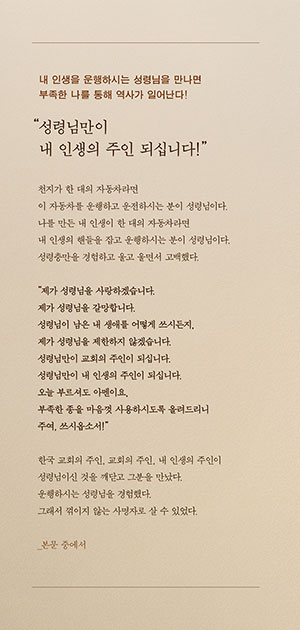 내 인생을 운행하시는 성령님을 만나면
부족한 나를 통해 역사가 일어난다!
“성령님만이
내 인생의 주인 되십니다!”
천지가 한 대의 자동차라면
이 자동차를 운행하고 운전하시는 분이 성령님이다.
나를 만든 내 인생이 한 대의 자동차라면
내 인생의 핸들을 잡고 운행하시는 분이 성령님이다.
성령충만을 경험하고 울고 울면서 고백했다.
“제가 성령님을 사랑하겠습니다.
제가 성령님을 갈망합니다.
성령님이 남은 내 생애를 어떻게 쓰시든지,
제가 성령님을 제한하지 않겠습니다.
성령님만이 교회의 주인이 되십니다.
성령님만이 내 인생의 주인이 되십니다.
오늘 부르셔도 아멘이요,
부족한 종을 마음껏 사용하시도록 올려드리니
주여, 쓰시옵소서!”
한국 교회의 주인, 교회의 주인, 내 인생의 주인이
성령님이신 것을 깨닫고 그분을 만났다.
운행하시는 성령님을 경험했다.
그래서 꺾이지 않는 사명자로 살 수 있었다.
_본문 중에서